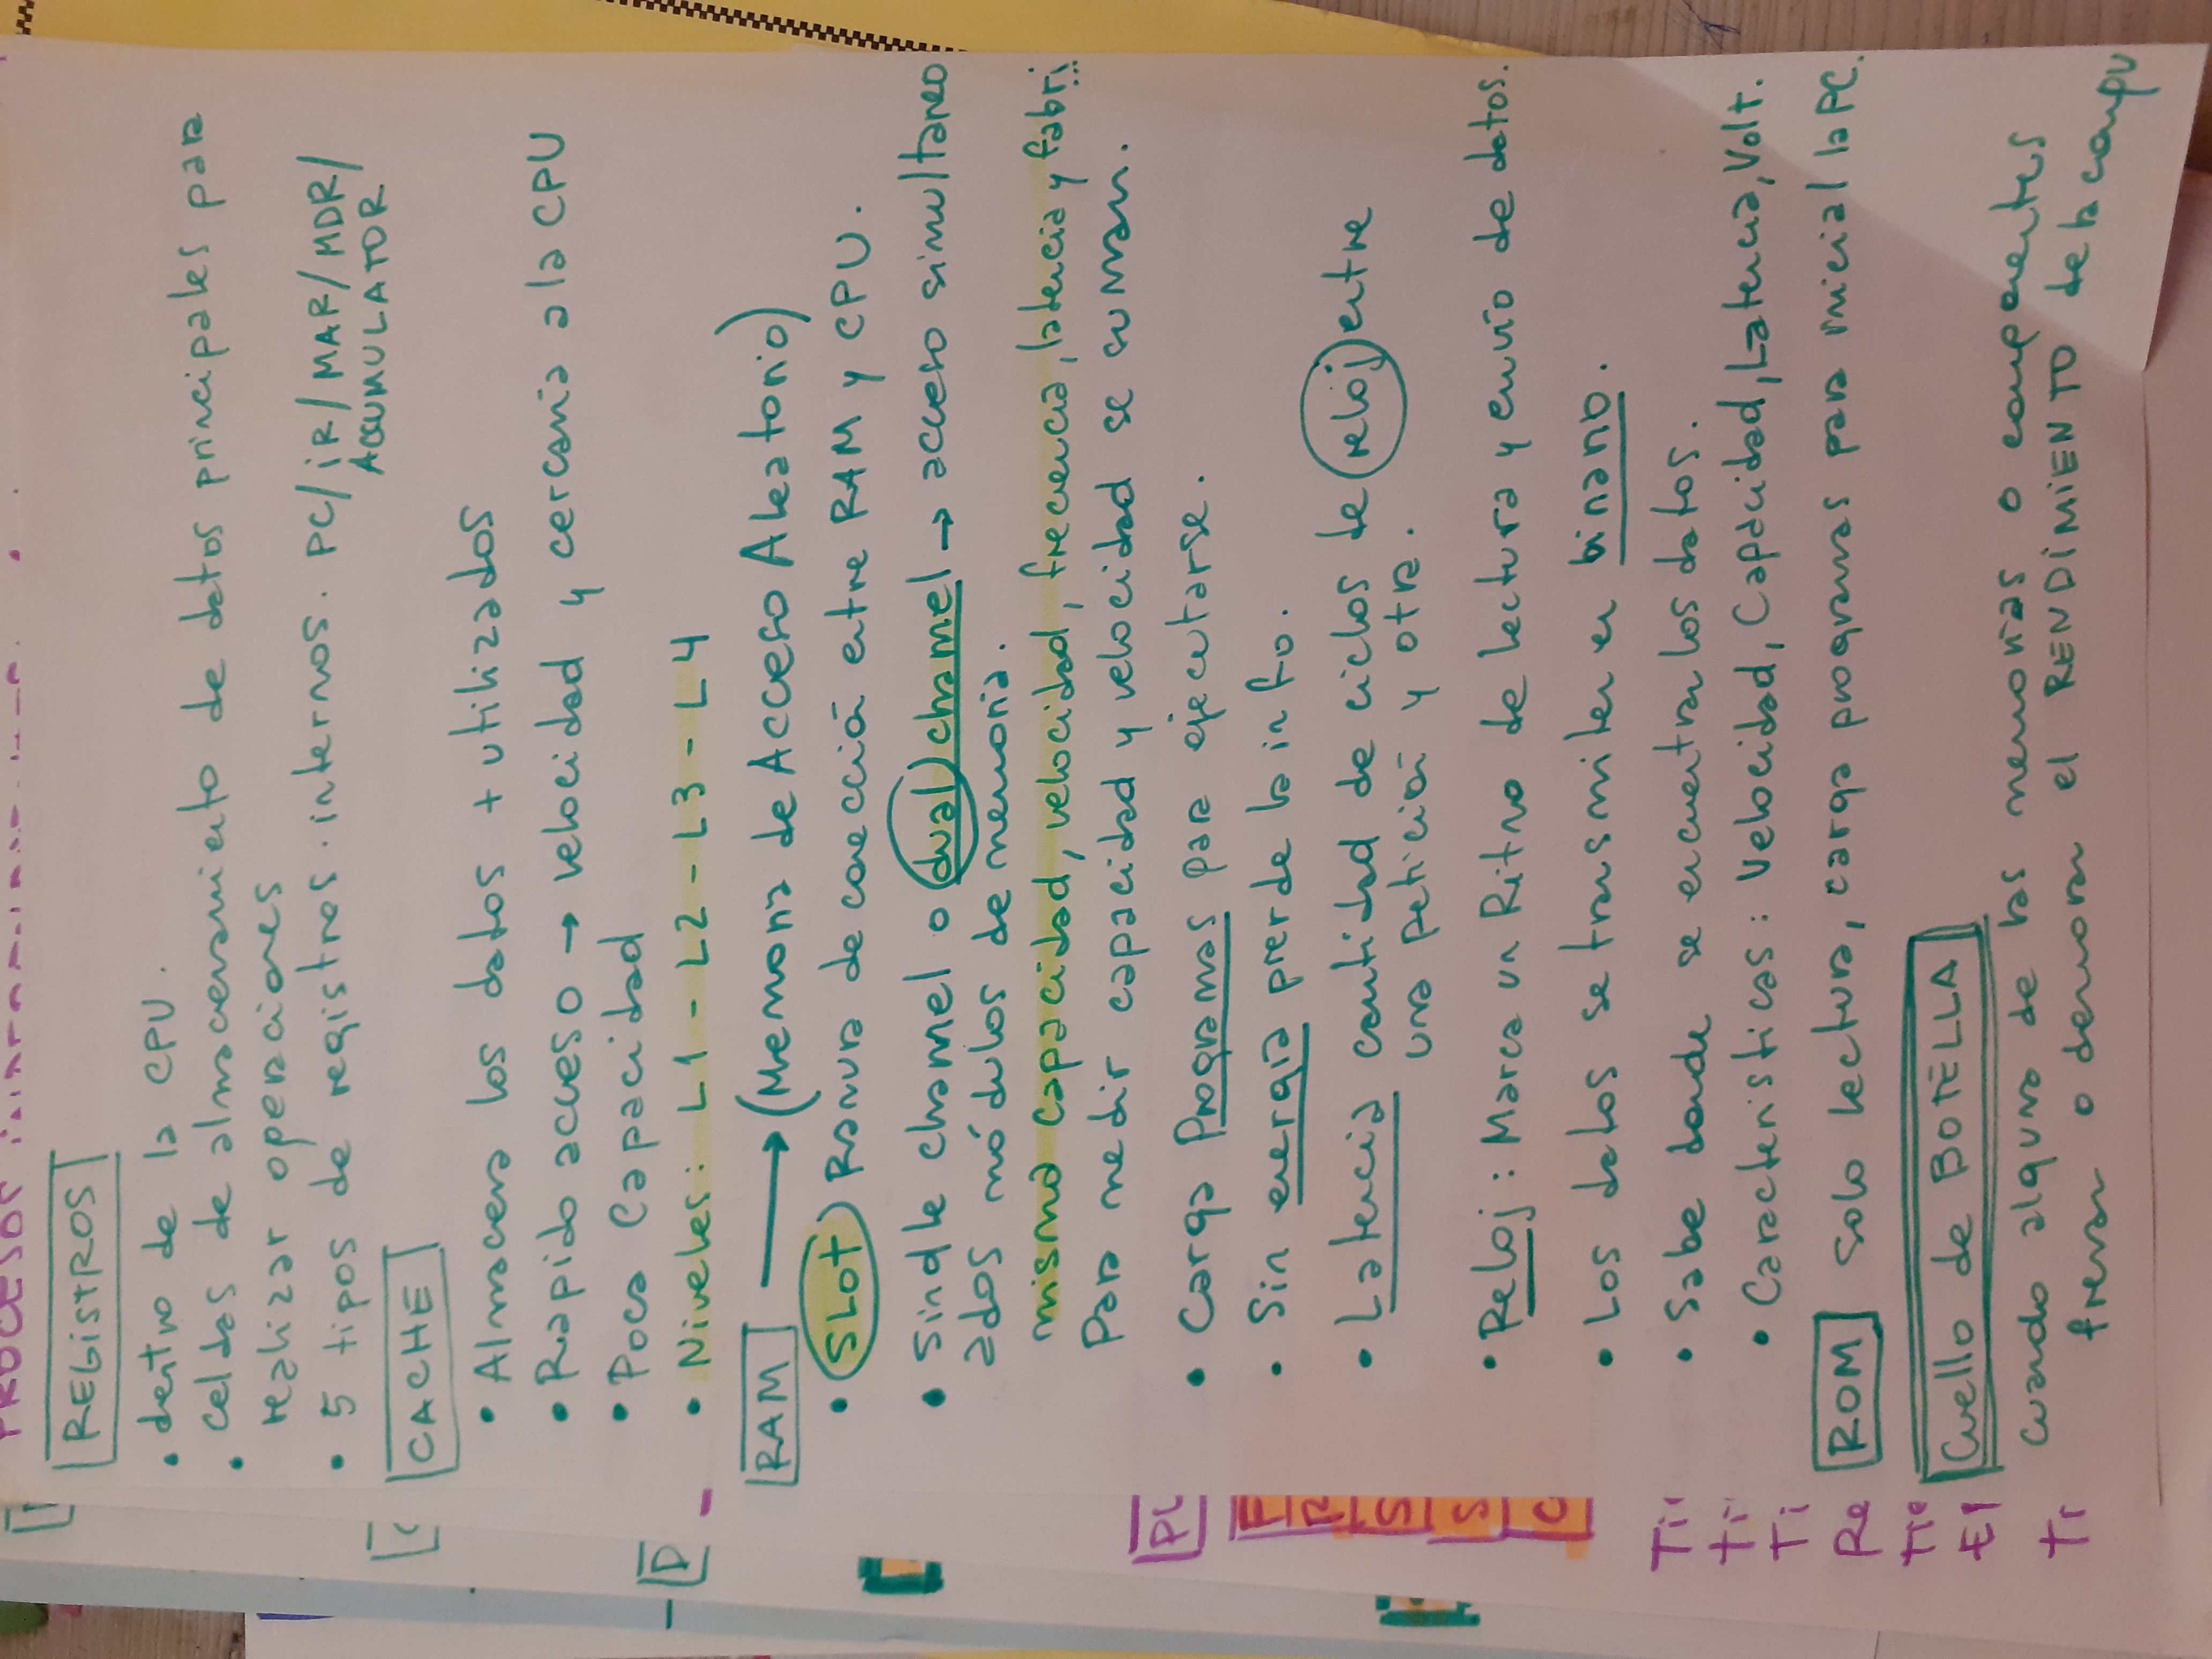 PROCESOS
REGISTROS
• dentro de la CPU.
• celdas de almacenamiento de datos principales para
realizar operaciones
• 5 tipos de registros internos. PC/iR/MAR/MDR/
ACCUMULATOR
CACHE
• Almacena los datos + utilizados
• Rapido acceso → velocidad y cercania a la CPU
• Poca Capacidad
• Niveles: L1 - L2 - L3 - L4
D
RAM → (Memoria de Acceso Aleatorio)
• SLOT Ranura de conección entre RAM y CPU.
• Sindle channel o dual channel → acceso simultaneo
a dos módulos de memoria.
misma capacidad, velocidad, frecuencia, latencia y fabri...
Para medir capacidad y velocidad se suman.
• Carga Programas para ejecutarse.
• Sin energia pierde la info.
• Latencia cantidad de ciclos de reloj entre
una petición y otra.
• Reloj: Marca un Ritmo de lectura y envio de datos.
• Los datos se transmiten en binario.
• Sabe donde se encuentran los datos.
• Caracteristicas: Velocidad, Capacidad, Latencia, Volt.
ROM solo lectura, carga programas para inicial la PC.
Cuello de BOTELLA
cuando alguna de las memorias o componentes
frenan o demoran el RENDIMIENTO de la compu